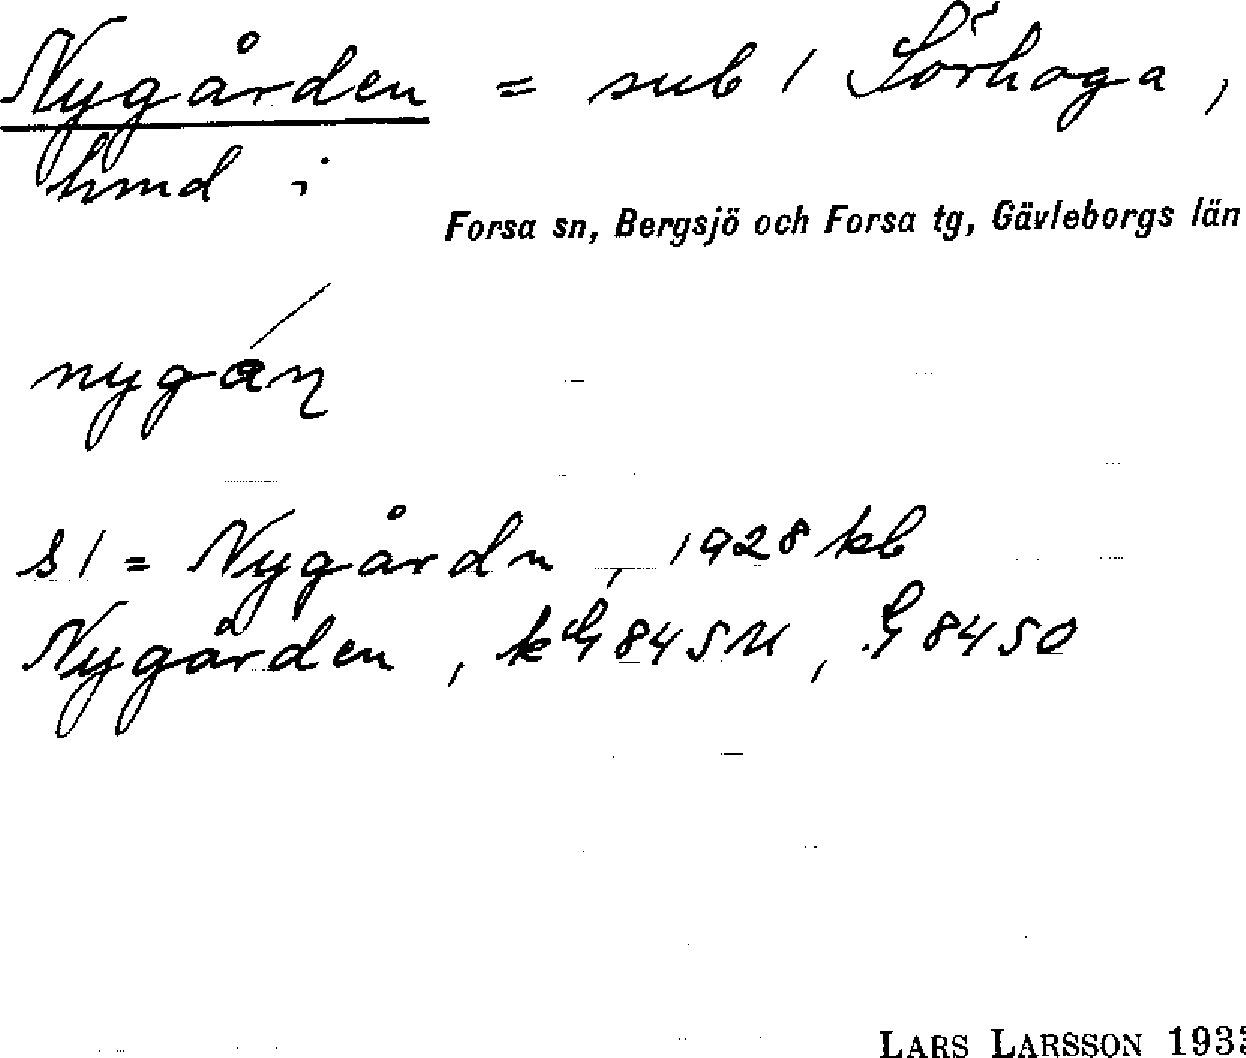 Nygården = sub 1 Sörhoga,
hmd i
Forsa sn, Bergsjö och Forsa tg, Gävleborgs län
nygáɳ
s1 = Nygårdn, 1928 kb
Nygården, 8450
LARS LARSSON